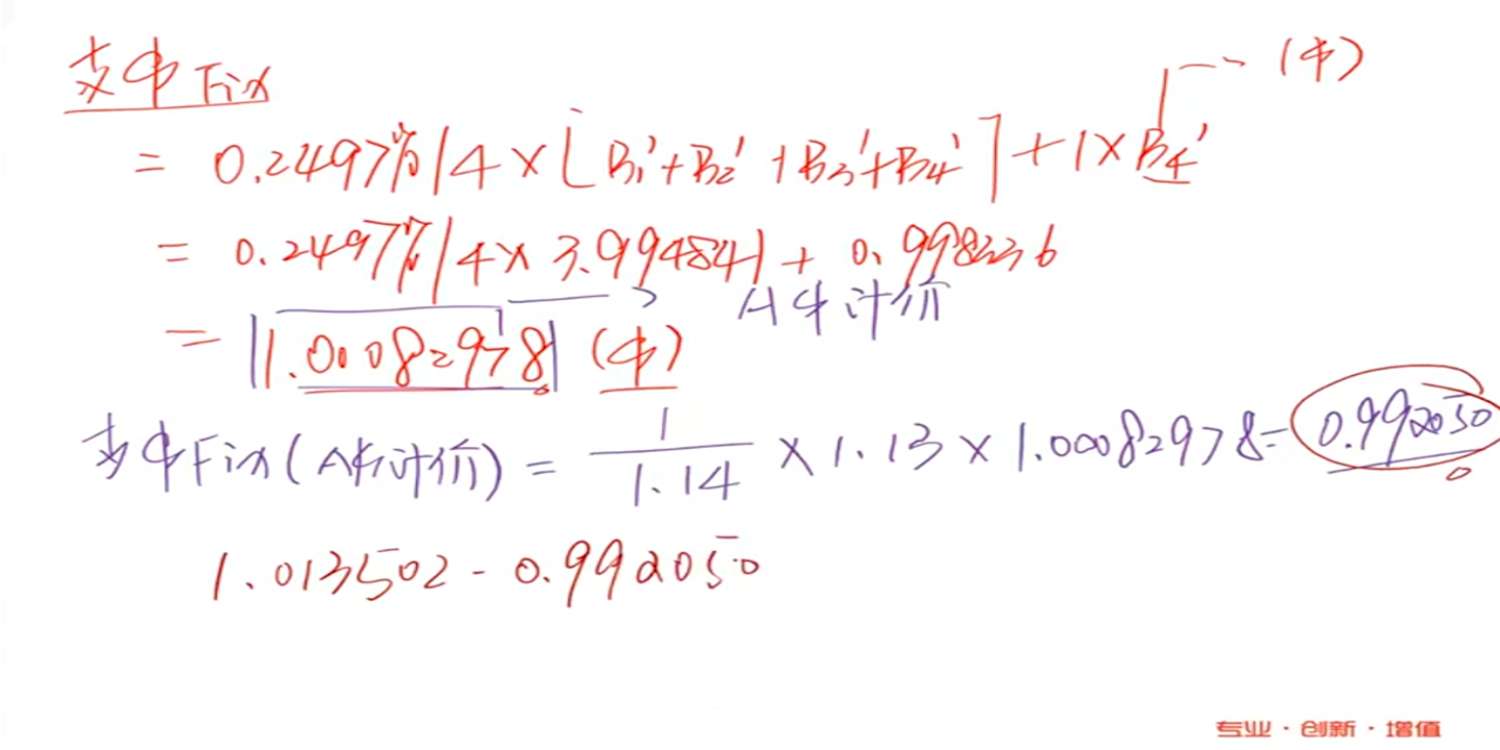 支中Fix
(中)
= 0.2497%/4×[B₁'+B₂'+B₃'+B₄']+1×B₄'
= 0.2497%/4×3.994841+0.998336
= 1.00082978 (中)
计价
支中Fix(计价) = 1/1.14 × 1.13 × 1.00082978 = 0.992050
1.013502 - 0.992050
专业·创新·增值